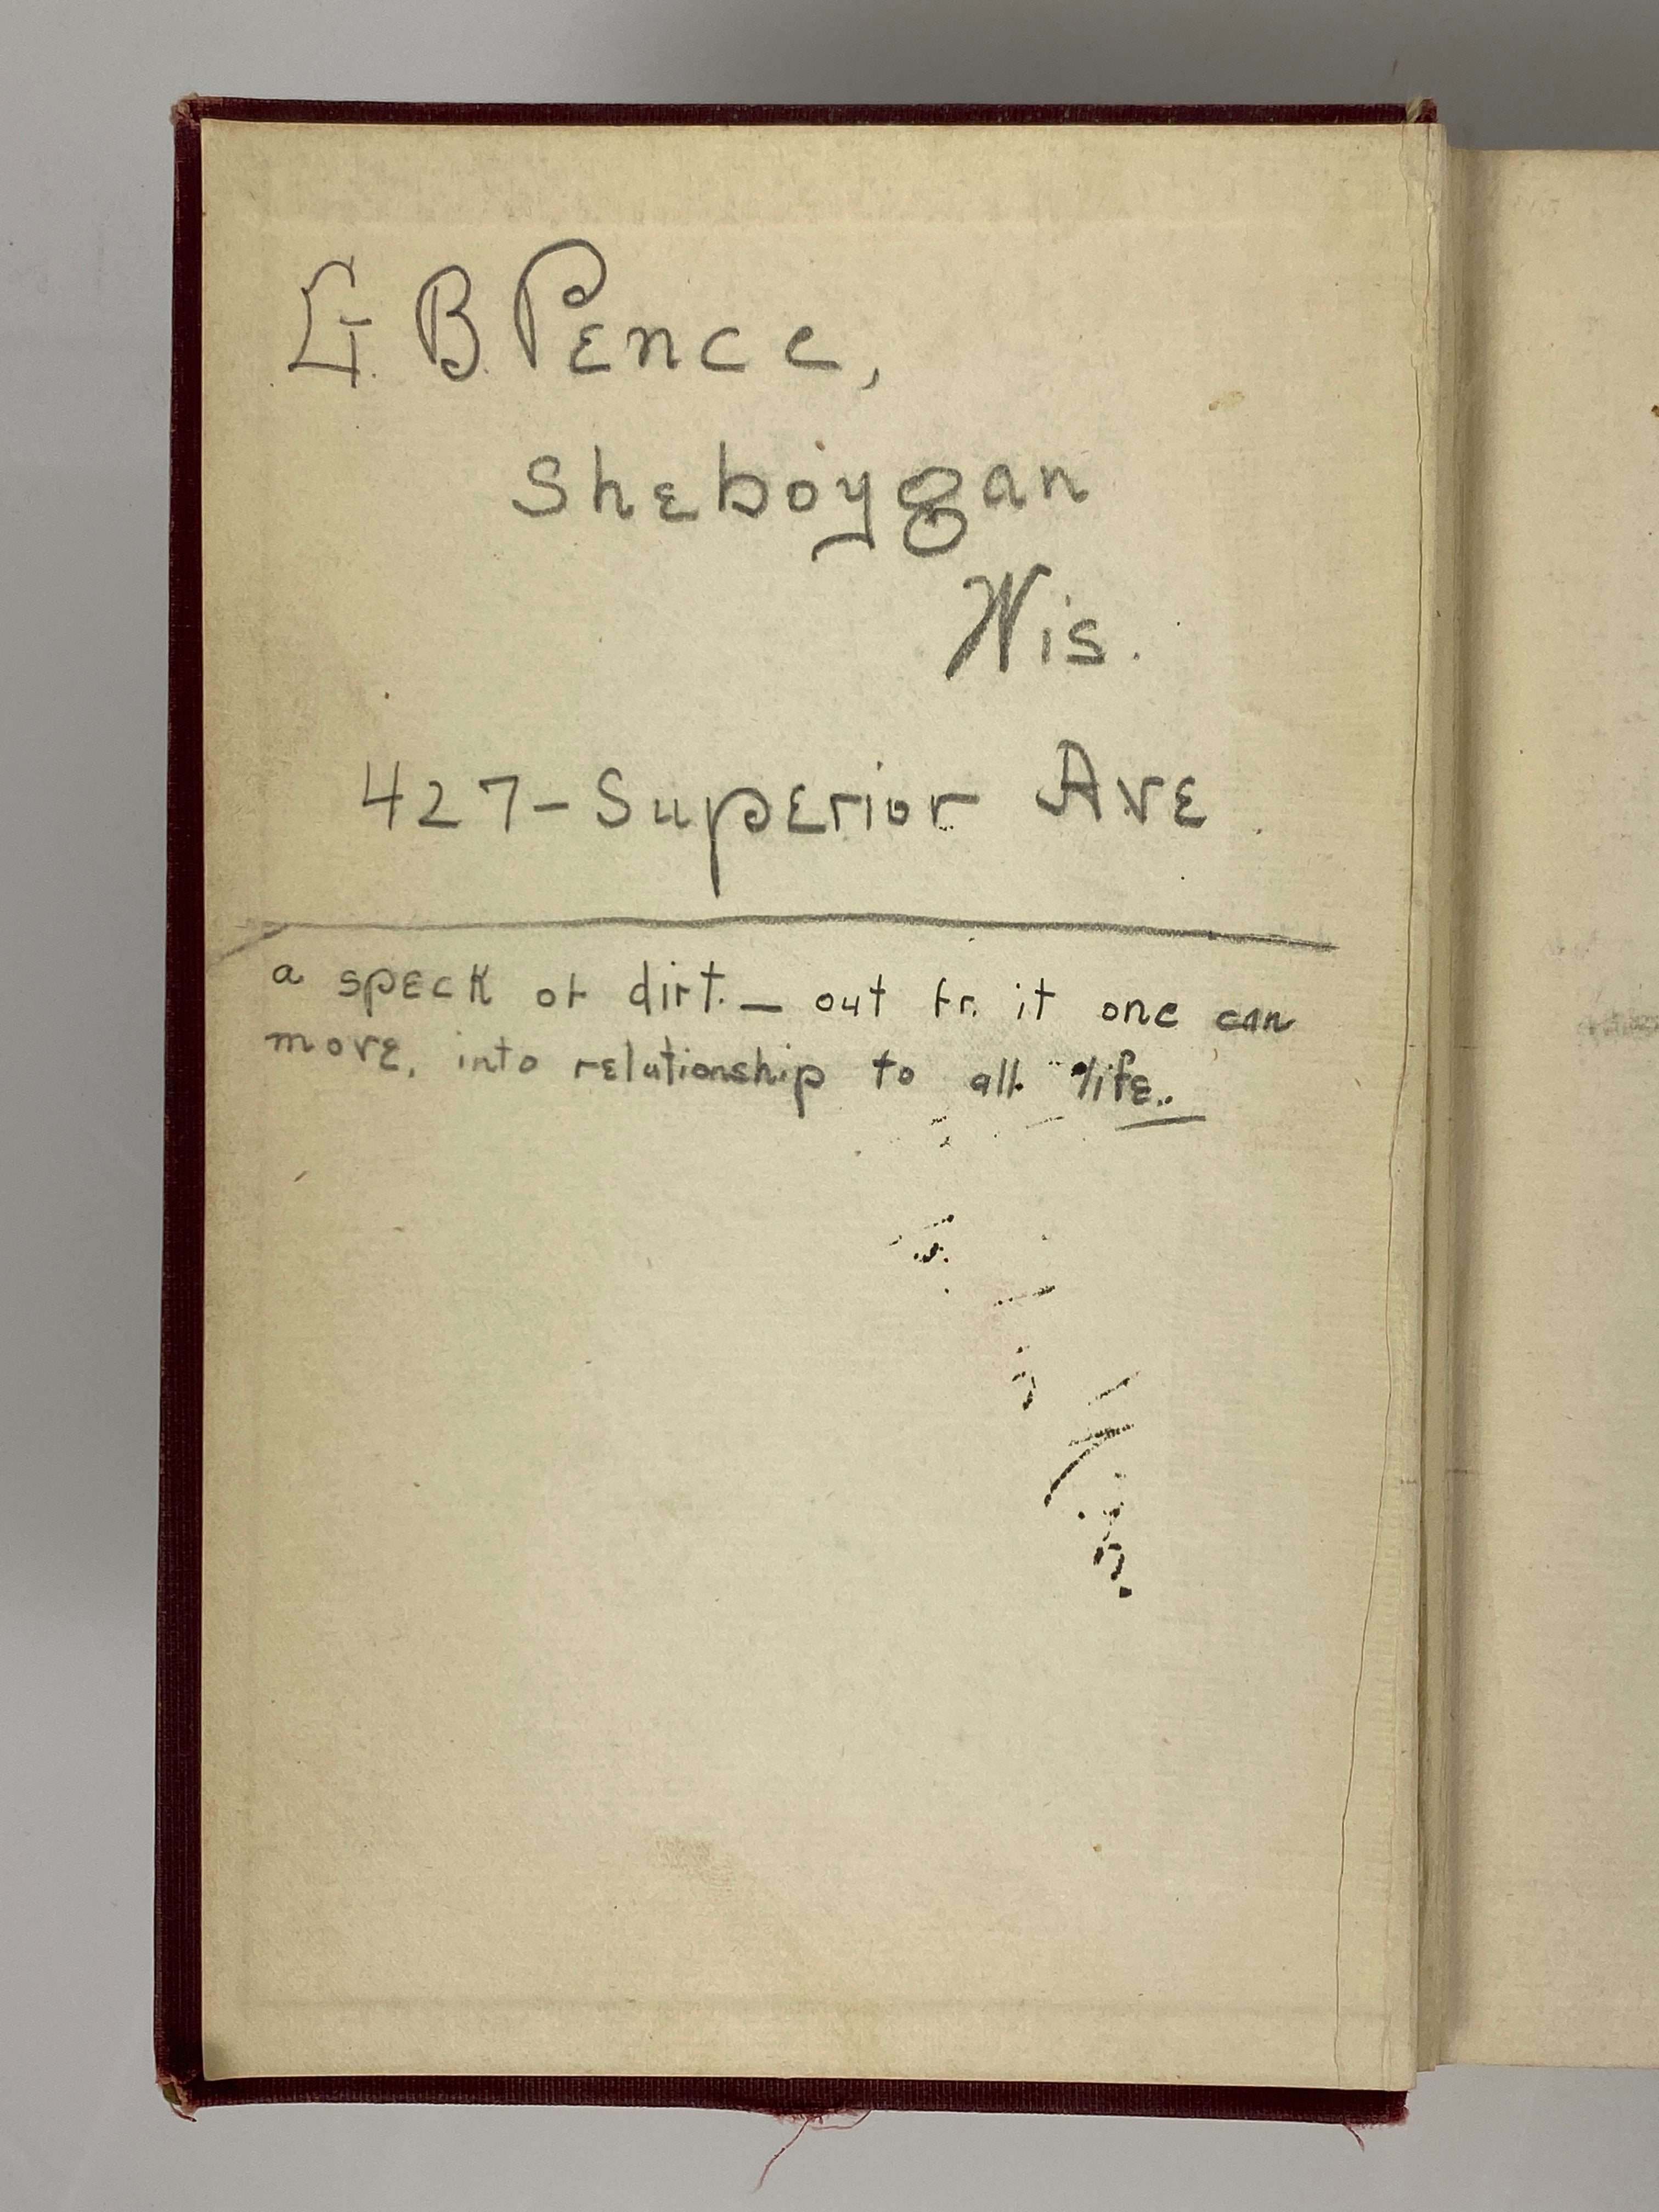 G. B. Pence,
Sheboygan
Wis.
427 - Superior Ave.
a speck of dirt. — out fr. it one can
move, into relationship to all life.